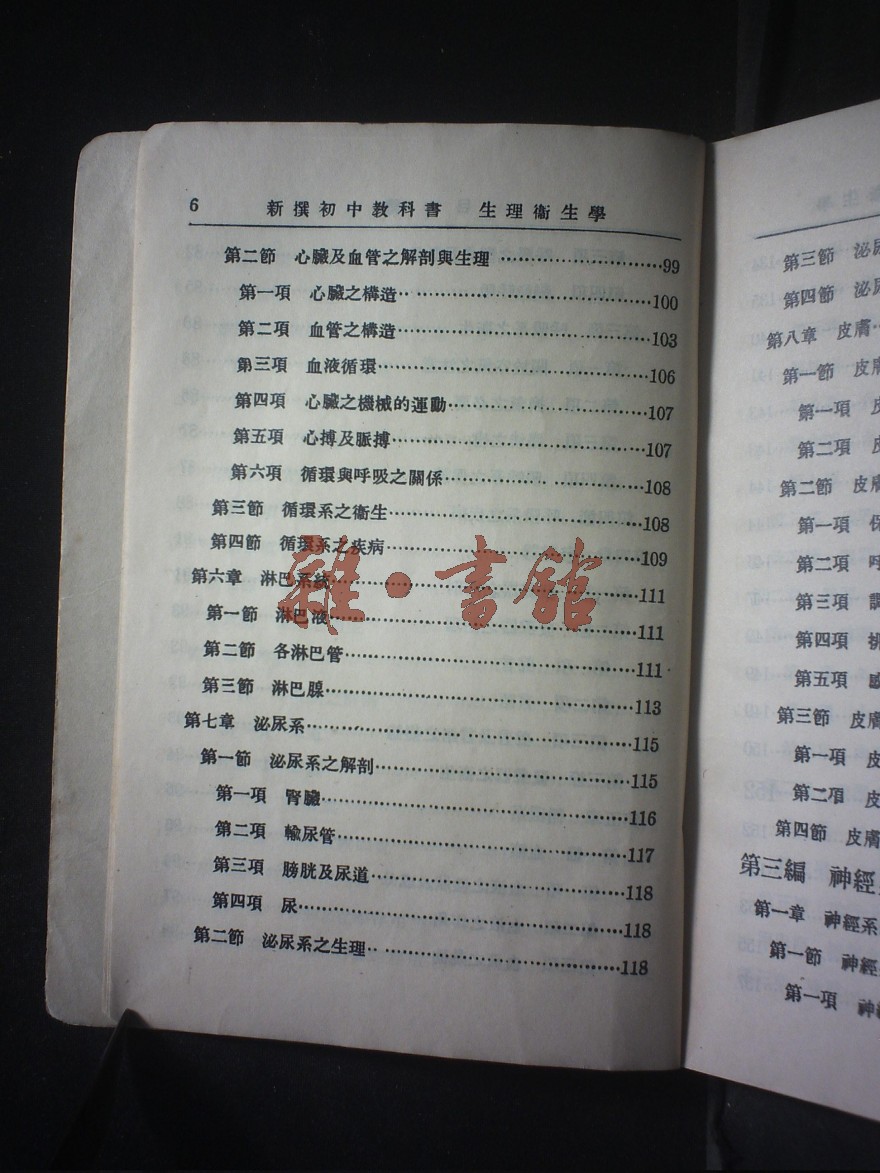 6 新撰初中教科書 生理衞生學
第二節 心臟及血管之解剖與生理 ……………………99
第一項 心臟之構造……………………100
第二項 血管之構造……………………103
第三項 血液循環……………………106
第四項 心臟之機械的運動……………………107
第五項 心搏及脈搏……………………107
第六項 循環與呼吸之關係……………………108
第三節 循環系之衞生……………………108
第四節 循環系之疾病……………………109
第六章 淋巴系統……………………111
第一節 淋巴液……………………111
第二節 各淋巴管……………………111
第三節 淋巴腺……………………113
第七章 泌尿系……………………115
第一節 泌尿系之解剖……………………115
第一項 腎臟……………………116
第二項 輸尿管……………………117
第三項 膀胱及尿道……………………118
第四項 尿……………………118
第二節 泌尿系之生理……………………118
雜·書館
第三節 泌
第四節 泌
第八章 皮膚
第一節 皮
第一項
第二項
第二節 皮膚
第一項
第二項
第三項
第四項
第五項
第三節 皮膚
第一項
第二項
第四節 皮膚
第三編 神經
第一章 神經系
第一節 神經
第一項 神